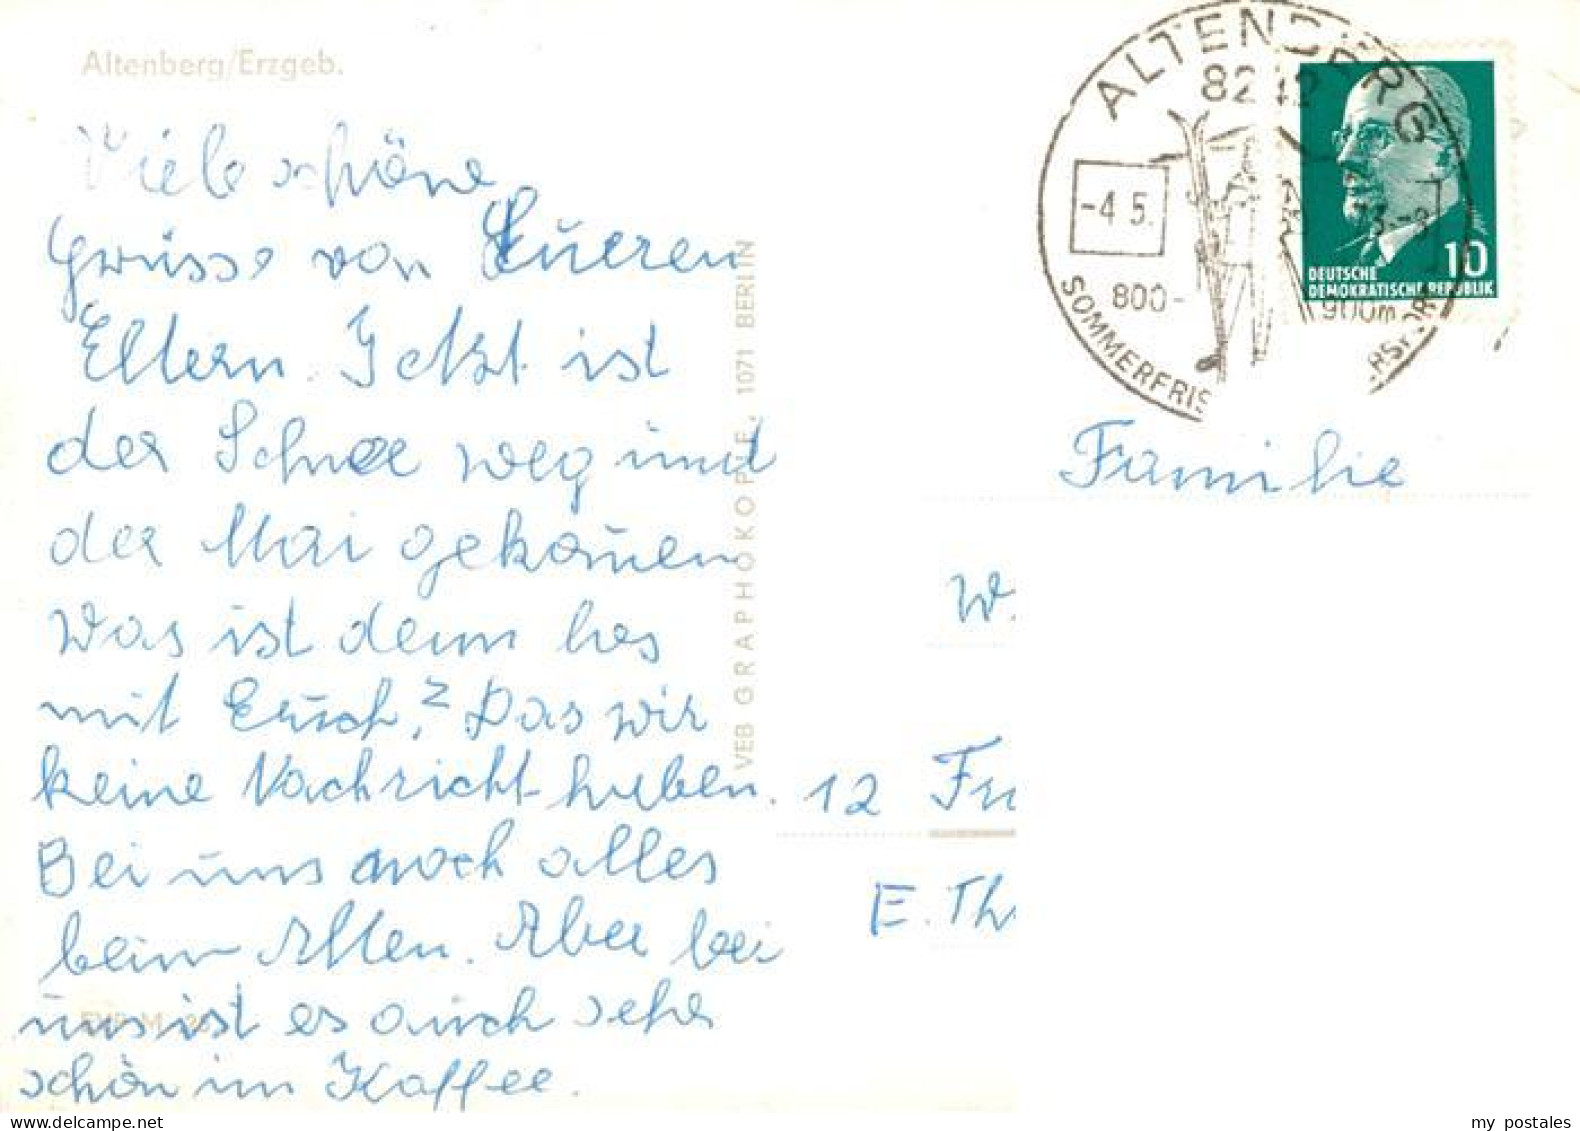 Altenberg/Erzgeb.
Viele schöne
Grüsse von Eueren
Eltern. Jetzt ist
der Schnee weg und
der Mai gekom̄en
Was ist denn los
mit Euch,? Das wir
keine Nachricht haben.
Bei uns noch alles
beim Alten. Aber bei
uns ist es auch sehr
schön im Kaffee.
VEB GRAPHOKOPIE, 1071 BERLIN
ALTENBERG
8242
-4.5.
73.-9
800-
900m
SOMMERFRIS
DEUTSCHE
DEMOKRATISCHE REPUBLIK
10
Familie
W.
12
E. Th
my postales